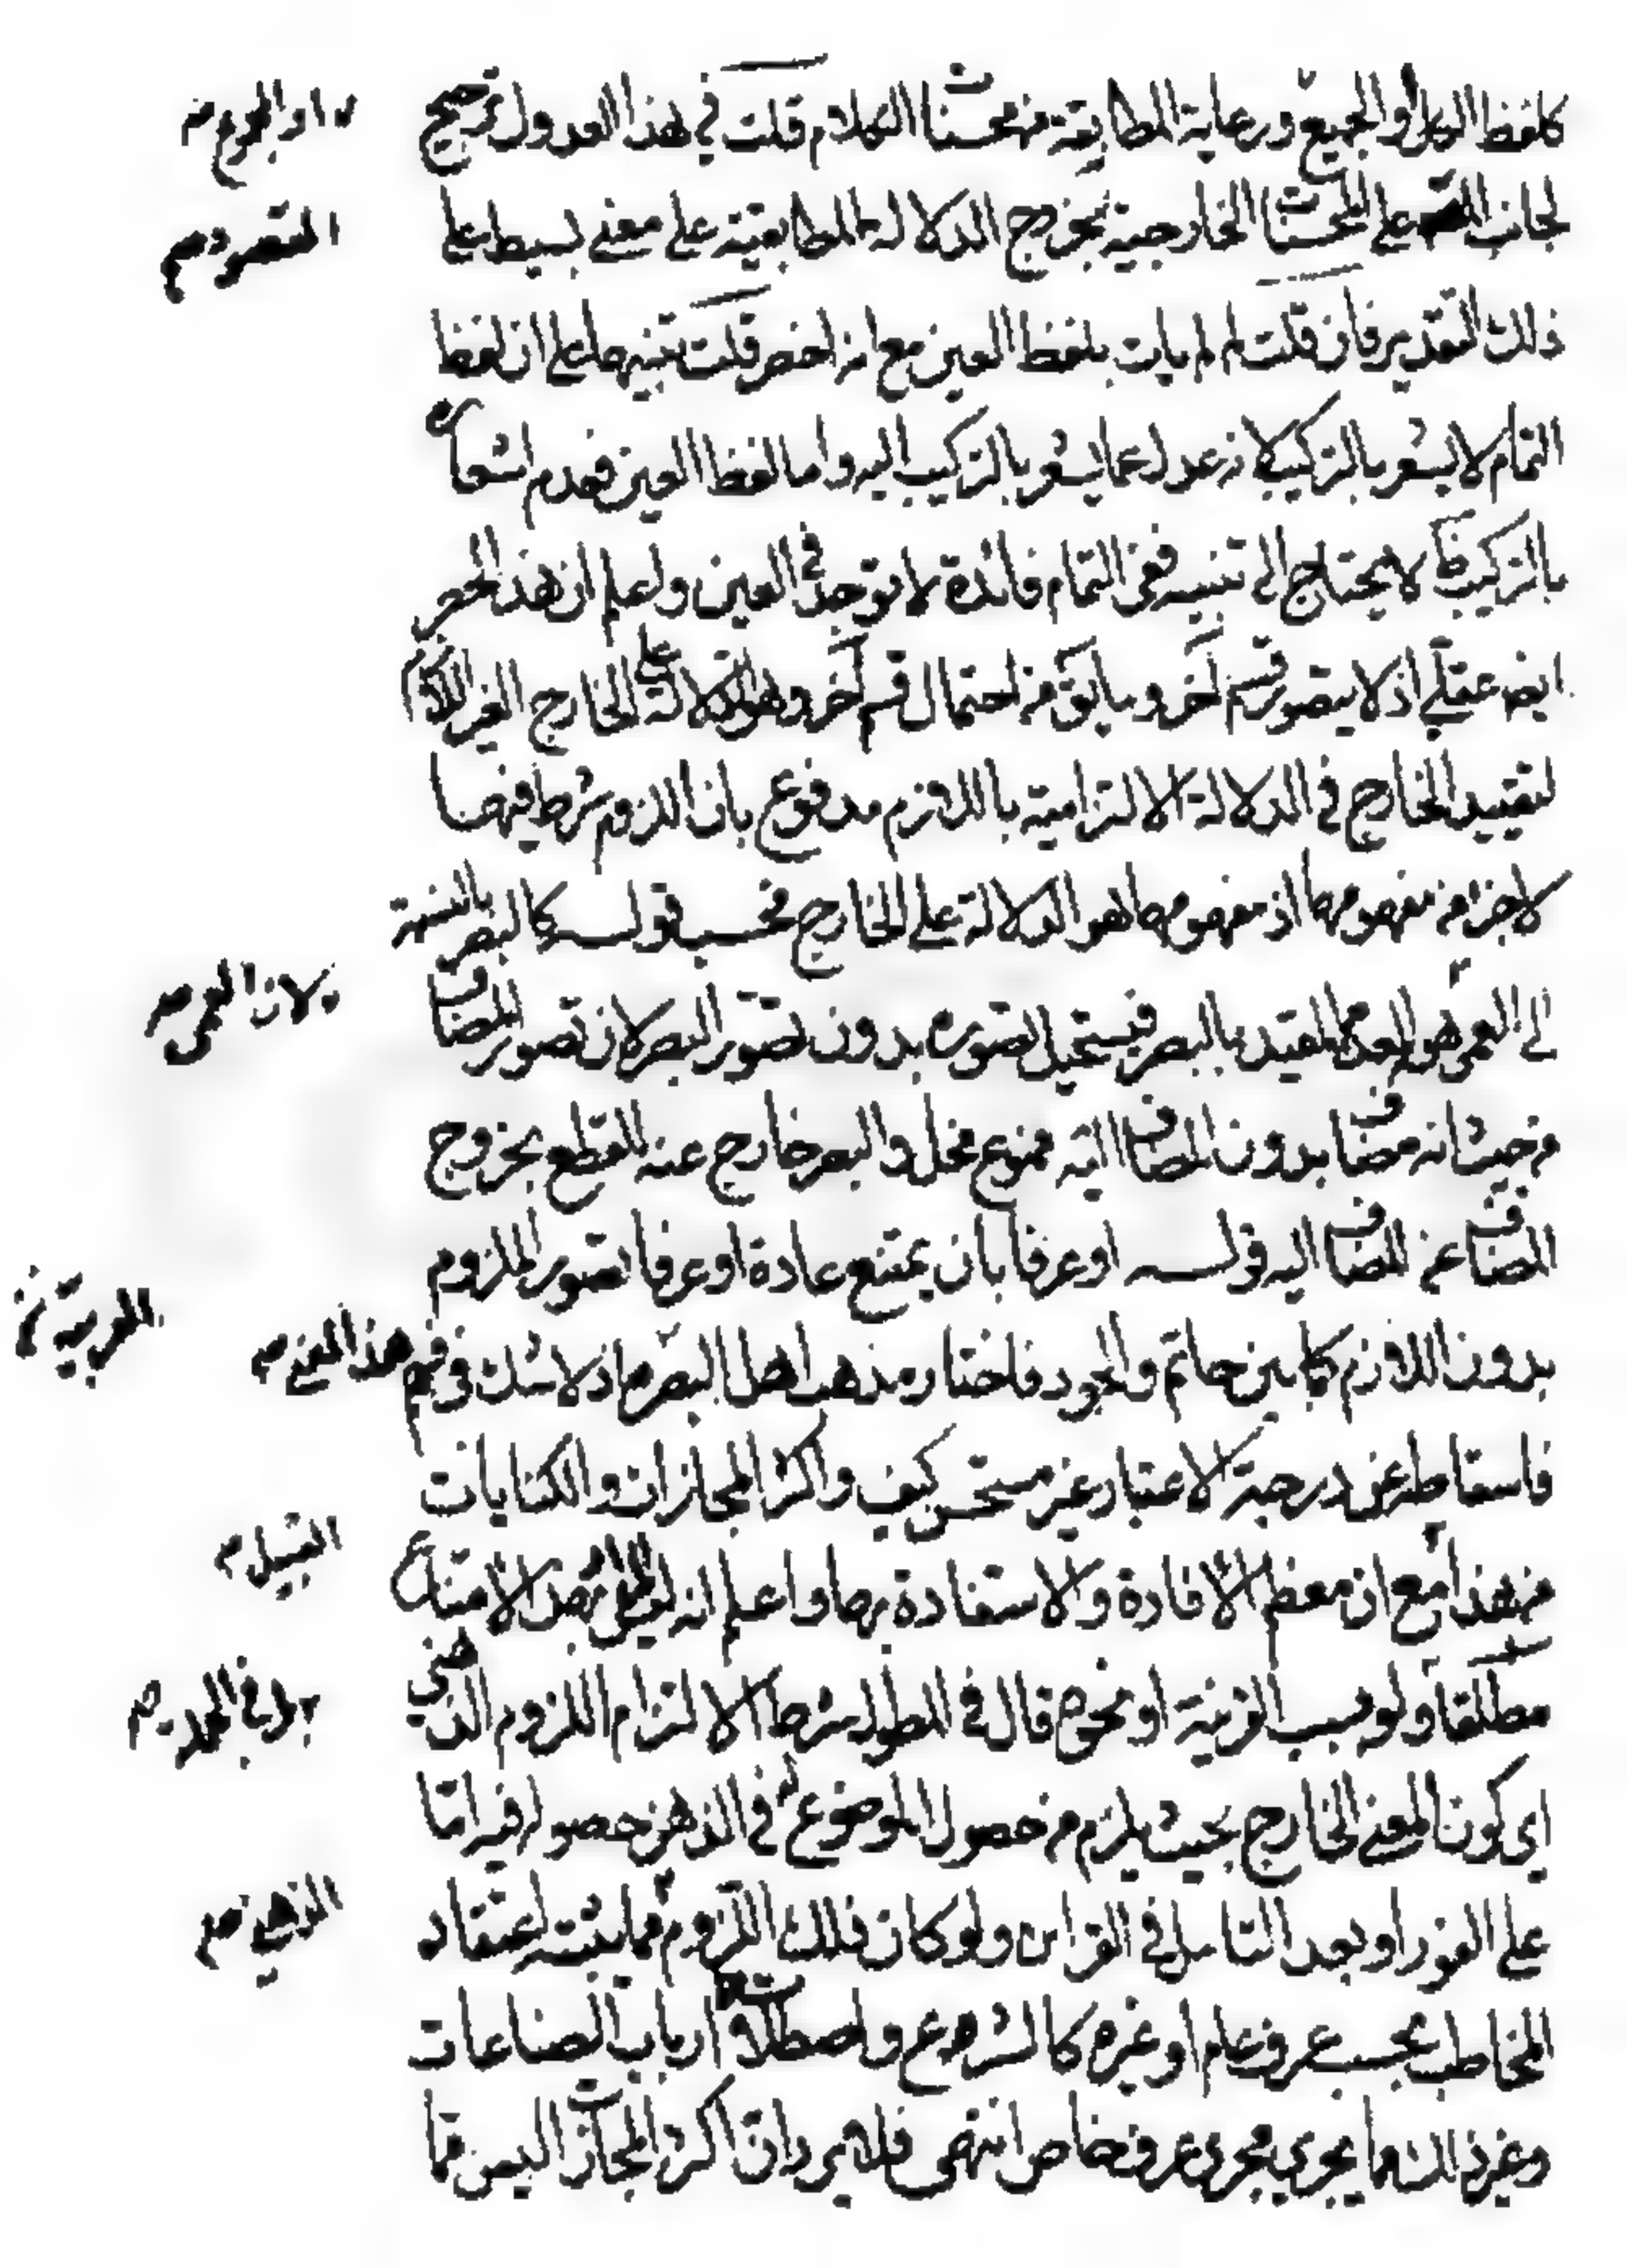 كلفظ الكل أو الجميع ورعاية المطابقة من محسنات الكلام قلت في هذا العدول ترجيح
او المجموع صح
لجانب على المحسنات الخارجية بخروج الدلالة المطابقية على معنى بسيط على
المقصود صح
ذلك التقدير فان قلت لم لم يات بلفظ العين مع انه اخصر قلت تنبيها على ان لفظ
التمام لا يشعر بالتركيب لانه عدل عما يشعر بالتركيب اليه واما لفظ العين فعدم اشعاره
بالتركيب لا يحتاج الى تنبيه ففي التمام فائدة لا توجد في العين واعلم ان هذا الحصر
ايضا عقلي اذ لا يتصور قسم آخر وما يقال من احتمال قسم آخر وهو الدلالة على الخارج الغير اللازم
لتقييد الخارج في الدلالة الالتزامية باللازم مدفوع بان اللزوم شرط فيها
لا جزء من مفهومها اذ مفهومها هو الدلالة على الخارج فحسب قوله كالبصر بالنسبة
الى العمى هو العدم المقيد بالبصر فيستحيل تصوره بدون تصور البصر لان تصور المضاف
لان العمى صح
من حيث انه مضاف بدون المضاف اليه ممنوع والبصر خارج عنه للقطع بخروج
المضاف عن المضاف اليه قوله او عرفا بان يمتنع عادة او عرفا تصور الملزوم
بدون اللازم كما بين حاتم والجود فاختار مذهب اهل اذ لا شك في فهم
هذا المعنى صح
العربية
فاسقاطه عن درجة الاعتبار غير مستحسن كيف واكثر المجازات والكنايات
من هذا مع ان معظم الافادة والاستفادة بها واعلم انه الامتناع
مطلقا ولو بسبب القرينة او نحوه قال في المطول شرط الالتزام اللزوم الذهني
اي كون المعنى الخارج بحيث يلزم من حصول الموضوع له في الذهن حصوله فيه اما
على الفور او بعد التامل في القراين ولو كان ذلك اللزوم مما يثبته اعتقاد
الذهني صح
المخاطب بحسب عرف عام او غيره كالشرع واصطلاحات ارباب الصناعات
وغير ذلك مما يجري مجرى عرف خاص انتهى فلا يرد ان اكثر المجازات ليس مما